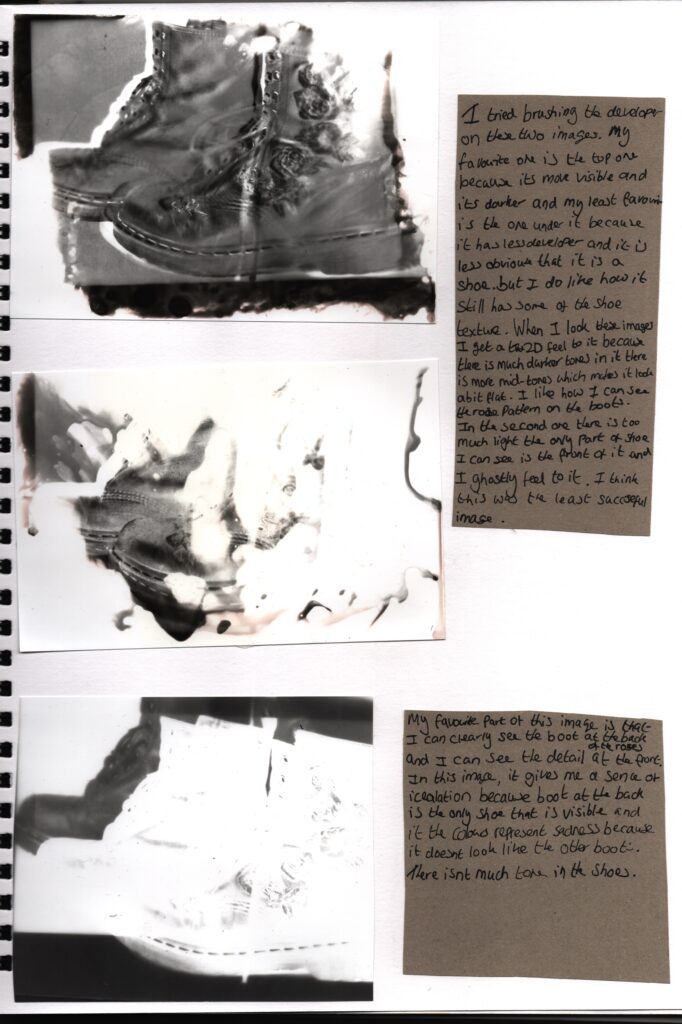 I tried brushing the developer
on these two images. My
favourite one is the top one
because its more visible and
its darker and my least favourite
is the one under it because
it has less developer and it is
less obvious that it is a
shoe. but I do like how it
still has some of the shoe
texture. When I look these images
I get a 2D feel to it because
there is much darker tones in it there
is more mid-tones which makes it look
a bit flat. I like how I can see
the rose pattern on the boots.
In the second one there is too
much light the only part of shoe
I can see is the front of it and
I ghostly feel to it. I think
this was the least successful
image.
My favourite part of this image is that
I can clearly see the boot at the back
of the roses
and I can see the detail at the front.
In this image, it gives me a sence of
icealation because boot at the back
is the only shoe that is visible and
it the colours represent sadness because
it doesnt look like the other boots.
There isnt much tone in the shoes.